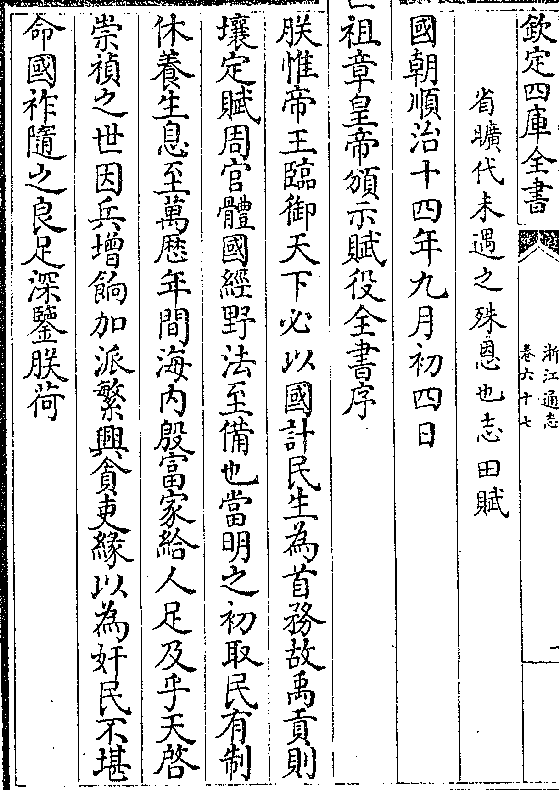 欽定四庫全書
浙江通志
卷六十七
省曠代未遇之殊恩也志田賦
國朝順治十四年九月初四日
祖章皇帝頒示賦役全書序
朕惟帝王臨御天下必以國計民生為首務故禹貢則
壤定賦周官體國經野法至備也當明之初取民有制
休養生息至萬歷年間海内殷富家給人足及乎天啓
崇禎之世因兵增餉加派繁興貪吏緣以為奸民不堪
命國祚隨之良足深鑒朕荷